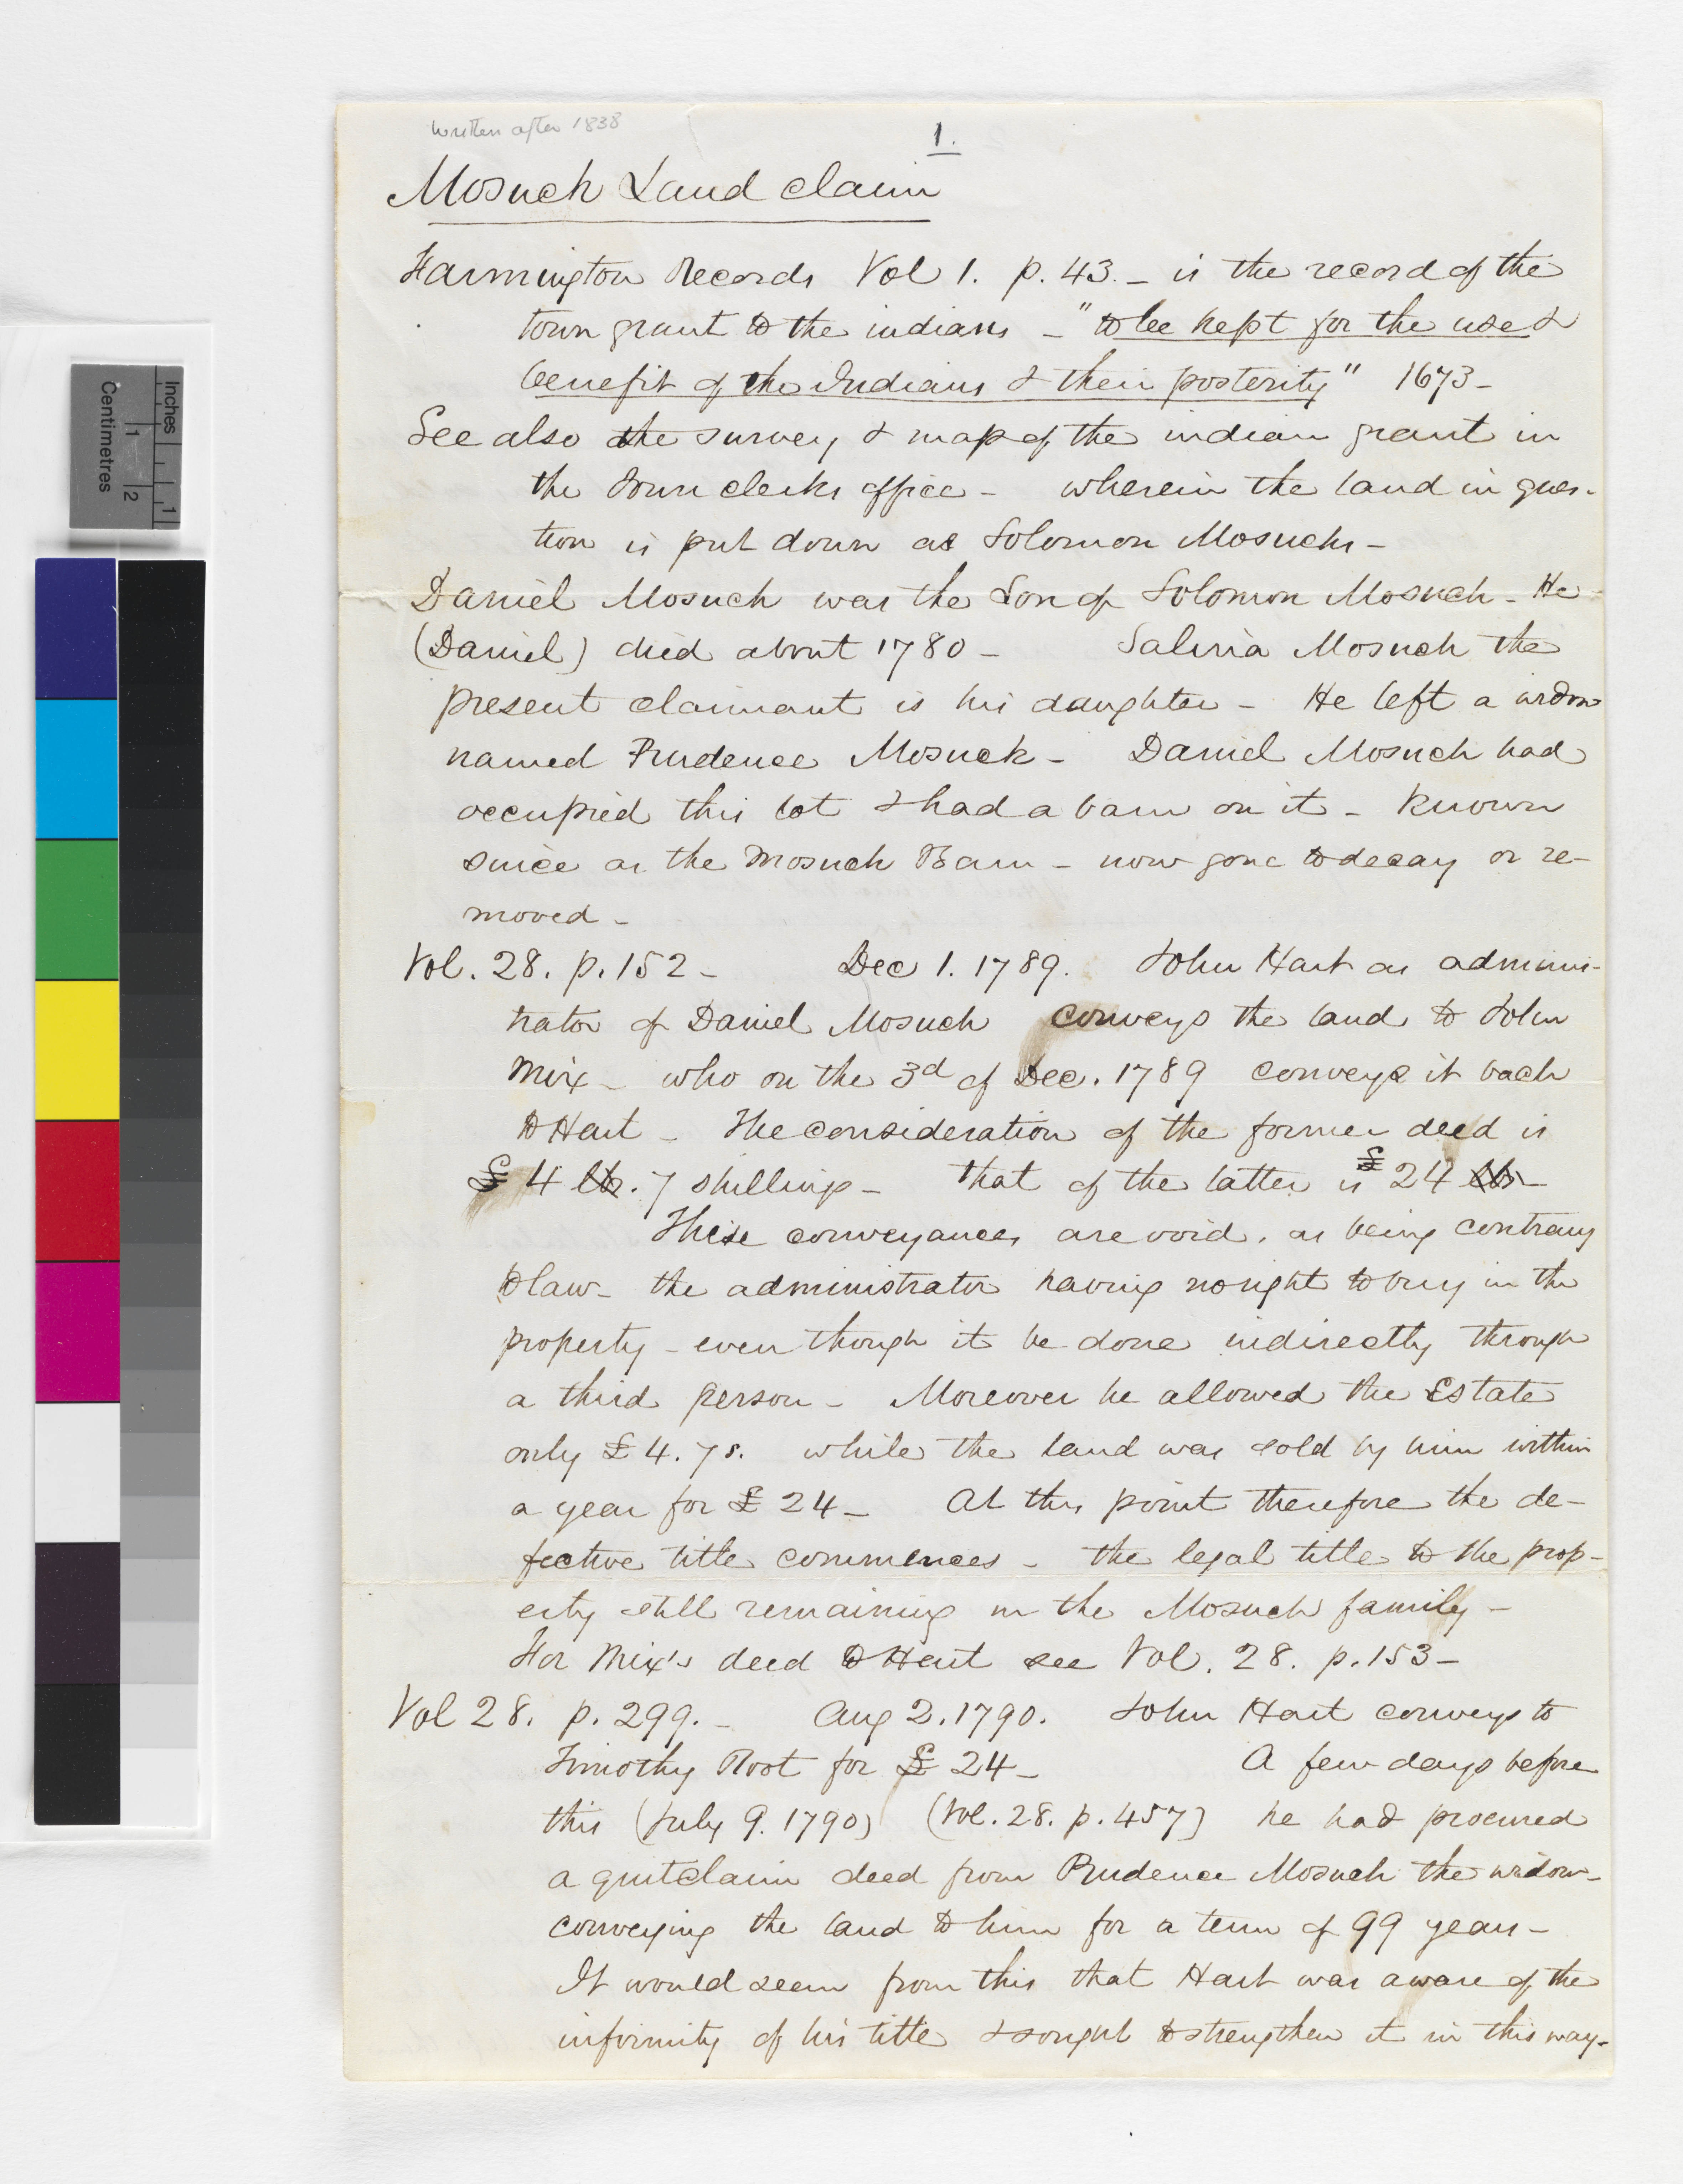 written after 1838
1.
Mosuck Land claim
Farmington Records Vol 1. p. 43. – is the record of the
town grant to the indians – "to be kept for the use &
benefit of the Indians & their posterity" 1673 –
See also the survey & map of the indian grant in
the Town clerks office – wherein the land in ques-
tion is put down as Solomon Mosucks –
Daniel Mosuck was the Son of Solomon Mosuck – He
(Daniel) died about 1780 – Saliria Mosuck the
present claimant is his daughter – He left a widow
named Prudence Mosuck – Daniel Mosuck had
occupied this lot & had a barn on it – Known
since as the Mosuck Barn – now gone to decay or re-
moved –
Vol. 28. p. 152 – Dec 1. 1789. John Hart as adminis-
trator of Daniel Mosuck conveys the land to John
Mix – who on the 3d of Dec. 1789 conveys it back
to Hart – The consideration of the former deed is
£ 4 lb. 7 shillings – that of the latter is £ 24 lbs –
These conveyances are void, as being contrary
to law – the administrator having no right to buy in the
property – even though it be done indirectly through
a third person – Moreover he allowed the Estate
only £ 4. 7s. while the land was sold by him within
a year for £ 24 – At this point therefore the de-
fective title commences – the legal title to the prop-
erty still remaining in the Mosuck family –
For Mix's deed to Hart see Vol. 28. p. 153 –
Vol 28. p. 299. – Aug 2. 1790. John Hart conveys to
Timothy Root for £ 24 – A few days before
this (July 9. 1790) (Vol. 28. p. 457) he had procured
a quitclaim deed from Prudence Mosuck the widow –
conveying the land to him for a term of 99 years –
It would seem from this that Hart was aware of the
infirmity of his title & sought to strengthen it in this way –
Inches
1
Centimetres
1
2